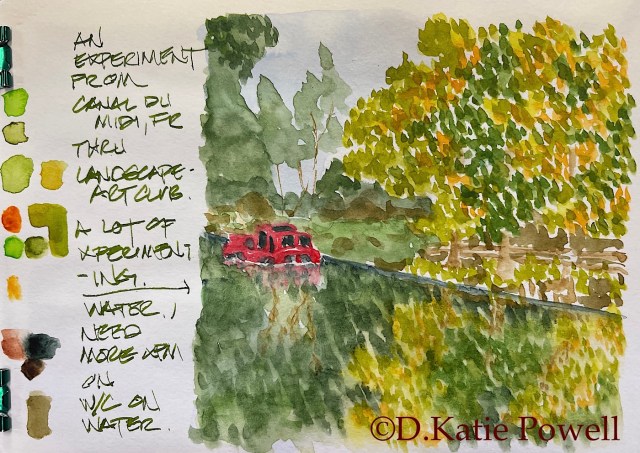 AN
EXPERIMENT
FROM
CANAL DU
MIDI, FR
THRU
LANDSCAPE-
ART CLUB.
A LOT OF
XPERIMENT
-ING.
WATER, I
NEED
MORE XPM
ON
W/C ON
WATER.
©D.Katie Powell